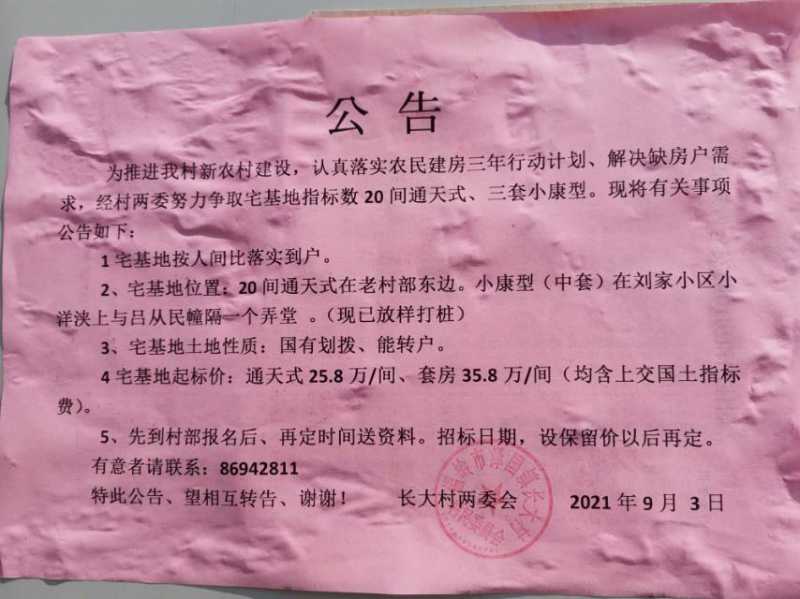 公告
为推进我村新农村建设，认真落实农民建房三年行动计划、解决缺房户需
求，经村两委努力争取宅基地指标数 20 间通天式、三套小康型。现将有关事项
公告如下：
1 宅基地按人间比落实到户。
2、宅基地位置：20 间通天式在老村部东边。小康型（中套）在刘家小区小
洋浃上与吕从民幢隔一个弄堂 。（现已放样打桩）
3、宅基地土地性质：国有划拨、能转户。
4 宅基地起标价：通天式 25.8 万/间、套房 35.8 万/间（均含上交国土指标
费）。
5、先到村部报名后、再定时间送资料。招标日期，设保留价以后再定。
有意者请联系：86942811
特此公告、望相互转告、谢谢！ 长大村两委会 2021 年 9 月 3 日